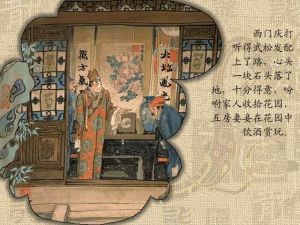 西门庆打
听得武松发配
上了路,心头
一块石头落了
地,十分得意,吩
咐家人收拾花园,
五房妻妾在花园中
饮酒赏玩。